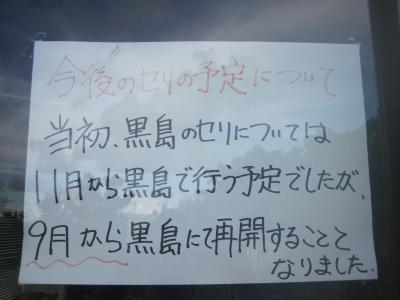 今後のセリの予定について
当初、黒島のセリについては
11月から黒島で行う予定でしたが、
9月から黒島にて再開することと
なりました.